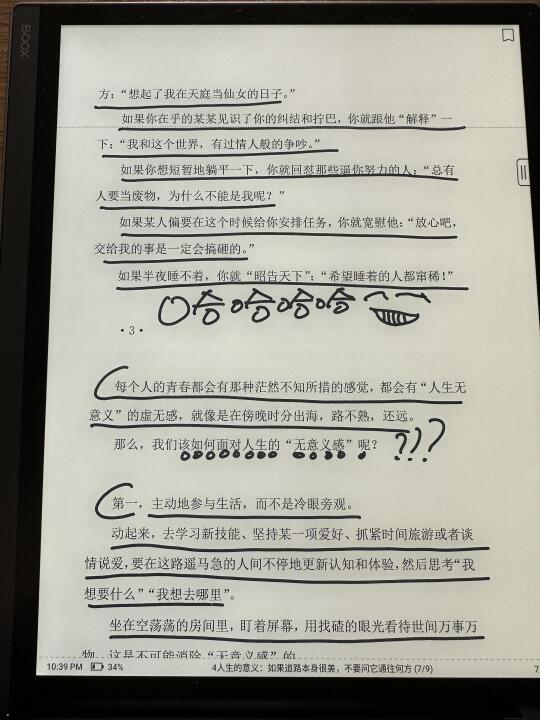 BOOX
方：“想起了我在天庭当仙女的日子。”
如果你在乎的某某见识了你的纠结和拧巴，你就跟他“解释”一
下：“我和这个世界，有过情人般的争吵。”
如果你想短暂地躺平一下，你就回怼那些逼你努力的人：“总有
人要当废物，为什么不能是我呢？”
如果某人偏要在这个时候给你安排任务，你就宽慰他：“放心吧，
交给我的事是一定会搞砸的。”
如果半夜睡不着，你就“昭告天下”：“希望睡着的人都窜稀！”
哈哈哈哈
·3·
每个人的青春都会有那种茫然不知所措的感觉，都会有“人生无
意义”的虚无感，就像是在傍晚时分出海，路不熟，还远。
那么，我们该如何面对人生的“无意义感”呢？
???
第一，主动地参与生活，而不是冷眼旁观。
动起来，去学习新技能、坚持某一项爱好、抓紧时间旅游或者谈
情说爱，要在这路遥马急的人间不停地更新认知和体验，然后思考“我
想要什么”“我想去哪里”。
坐在空荡荡的房间里，盯着屏幕，用找碴的眼光看待世间万事万
物，这是不可能消除“无意义感”的
10:39 PM 34% 4人生的意义：如果道路本身很美，不要问它通往何方 (7/9) 7